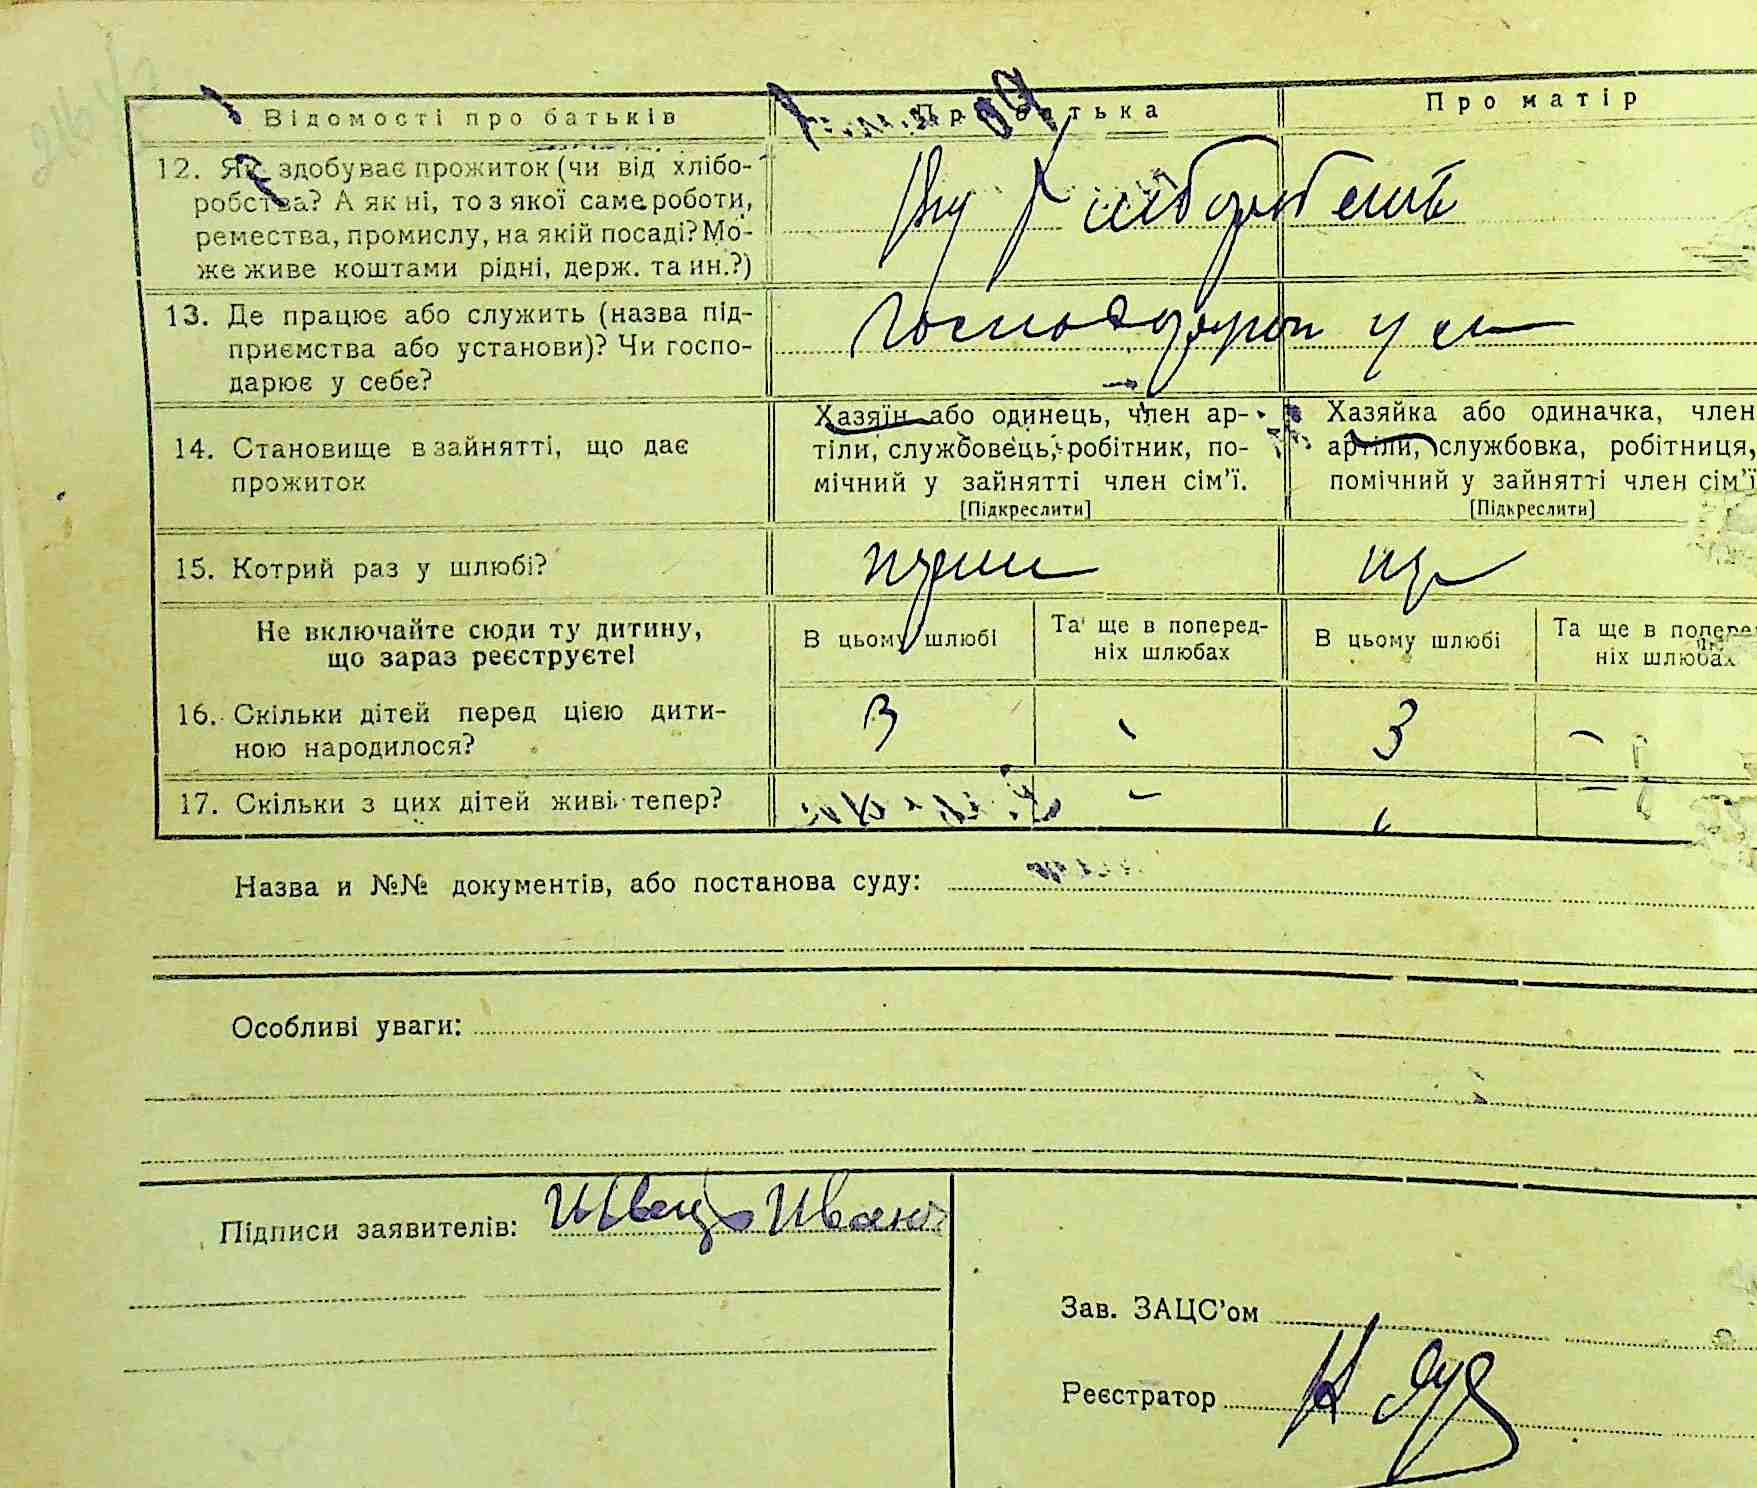 Відомості про батьків
Про батька
Про матір
12. Як здобуває прожиток (чи від хлібо-
робства? А як ні, то з якої саме роботи,
ремества, промислу, на якій посаді? Мо-
же живе коштами рідні, держ. та ин.?)
13. Де працює або служить (назва під-
приємства або установи)? Чи госпо-
дарює у себе?
14. Становище в зайнятті, що дає
прожиток
Хазяїн або одинець, член ар-
тіли, службовець, робітник, по-
мічний у зайнятті член сім'ї.
[Підкреслити]
Хазяйка або одиначка, член
артіли, службовка, робітниця,
помічний у зайнятті член сім'ї
[Підкреслити]
15. Котрий раз у шлюбі?
Не включайте сюди ту дитину,
що зараз реєструєте!
В цьому шлюбі
Та ще в поперед-
ніх шлюбах
В цьому шлюбі
Та ще в попере
ніх шлюбах
16. Скільки дітей перед цією дити-
ною народилося?
3
3
17. Скільки з цих дітей живі тепер?
Назва и №№ документів, або постанова суду:
Особливі уваги:
Підписи заявителів: Швець Иван
Зав. ЗАЦС'ом
Реєстратор